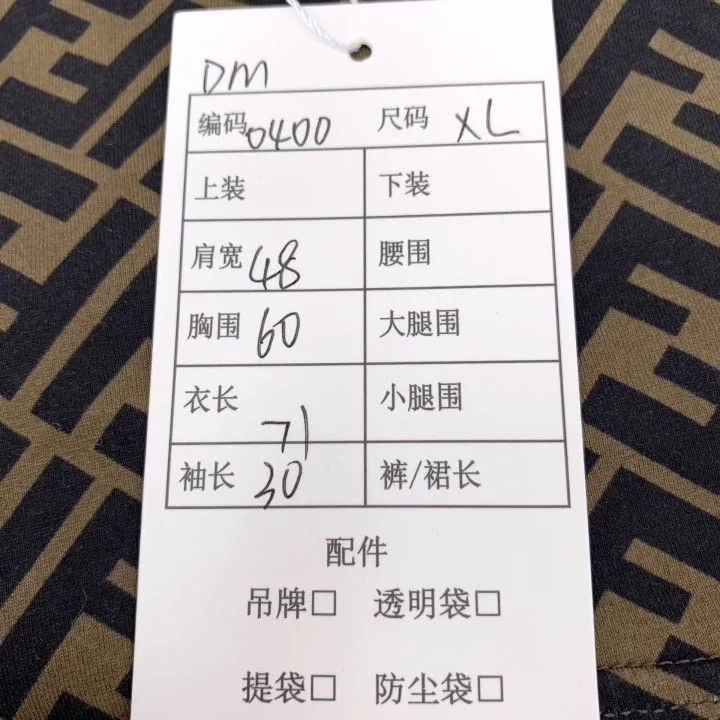 DM
编码 0400 尺码 XL
上装 下装
肩宽 48 腰围
胸围 60 大腿围
衣长 71 小腿围
袖长 30 裤/裙长
配件
吊牌□ 透明袋□
提袋□ 防尘袋□